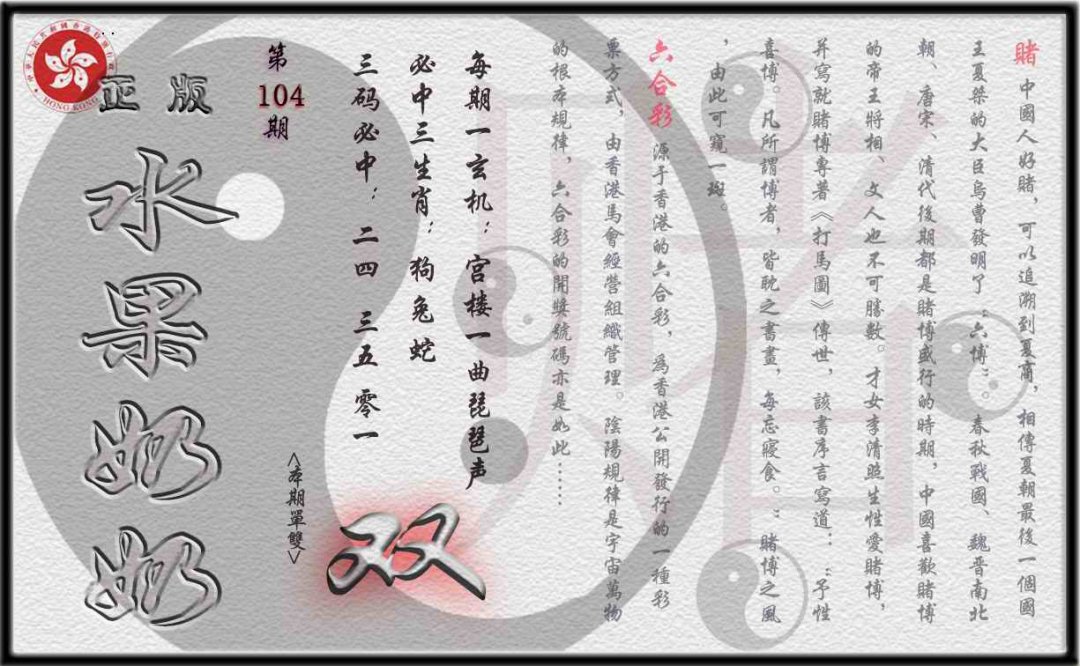 賭 中國人好賭，可以追溯到夏商，相傳夏朝最後一個國
王夏桀的大臣烏曹發明了“六博”。春秋戰國、魏晋南北
朝、唐宋、清代後期都是賭博盛行的時期，中國喜歡賭博
的帝王將相、文人也不可勝數。才女李清照生性愛賭博，
并寫就賭博專著《打馬圖》傳世，該書序言寫道：“予性
喜博。凡所謂博者，皆耽之晝畫，每忘寢食。”賭博之風
，由此可窺一斑。
六合彩 源于香港的六合彩，爲香港公開發行的一種彩
票方式，由香港馬會經營組織管理。陰陽規律是宇宙萬物
的根本規律，六合彩的開獎號碼亦是如此……
每期一玄机：宫楼一曲琵琶声
必中三生肖：狗兔蛇
三码必中：二四 三五 零一
双
<本期單雙>
第
104
期
正版
水果奶奶
HONG KONG